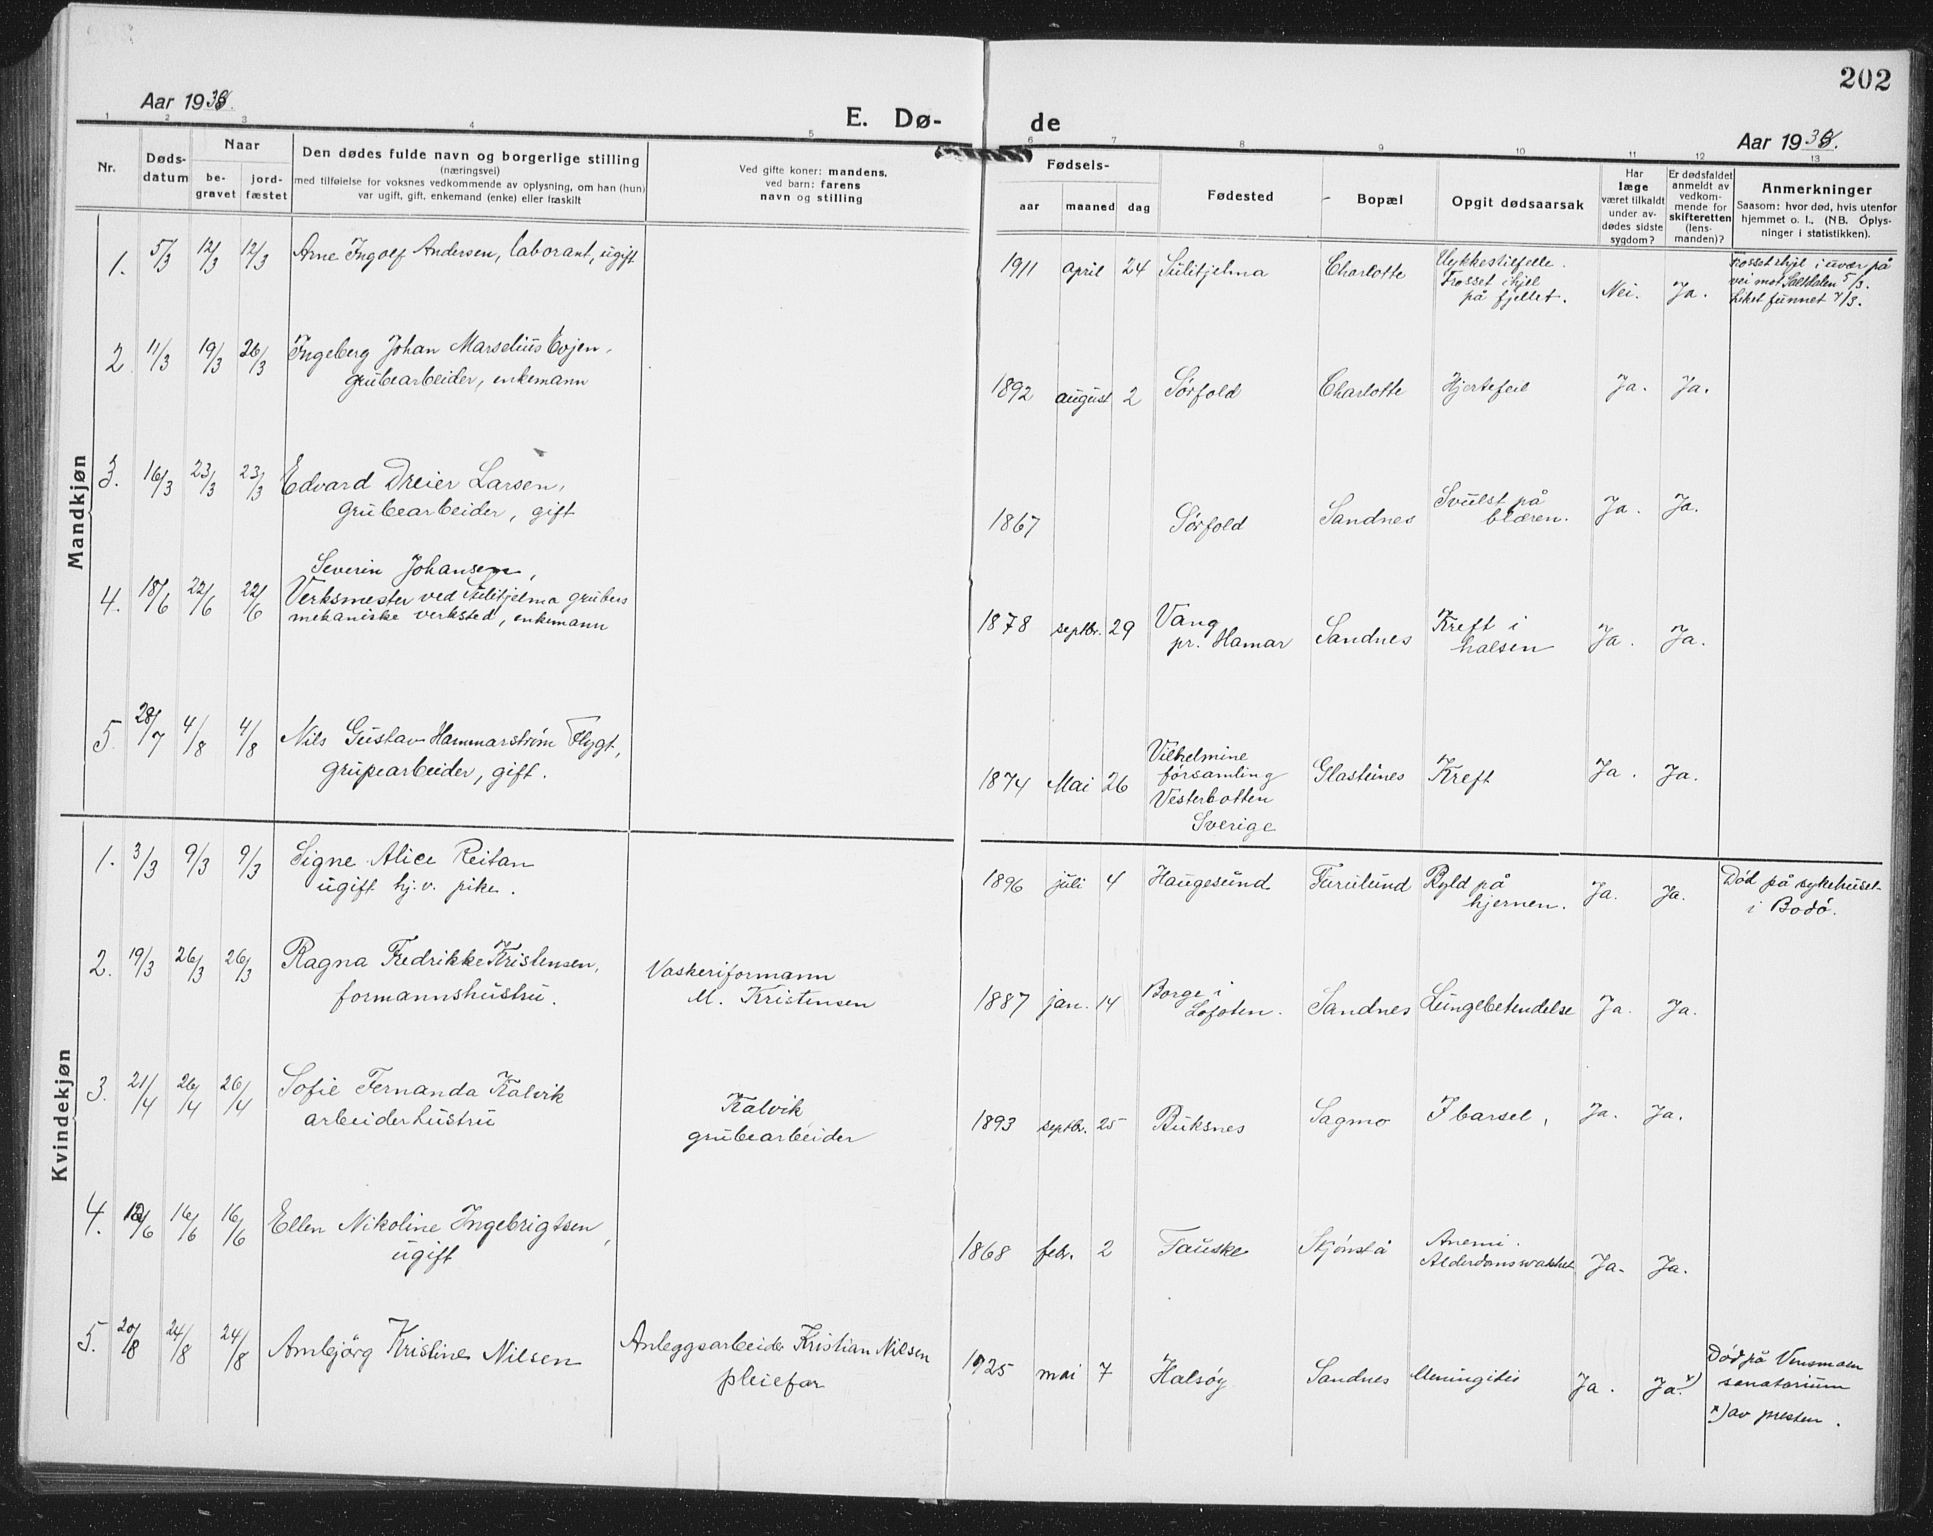 202
Aar 193
E. Dø-
de
Aar 193
1 2 3 4 5 6 7 8 9 10 11 12 13
Nr.
Døds-
datum
Naar
be-
gravet
jord-
fæstet
Den dødes fulde navn og borgerlige stilling
(næringsvei)
med tilføielse for voksnes vedkommende av oplysning, om han (hun)
var ugift, gift, enkemand (enke) eller fraskilt
Ved gifte koner: mandens,
ved barn: farens
navn og stilling
Fødsels-
aar maaned dag
Fødested
Bopæl
Opgit dødsaarsak
Har
læge
været tilkaldt
under av-
dødes sidste
sygdom?
Er dødsfaldet
anmeldt av
vedkom-
mende for
skifteretten
(lens-
manden)?
Anmerkninger
Saasom: hvor død, hvis utenfor
hjemmet o. l., (NB. Oplys-
ninger i statistikken).
Mandkjøn
1. 5/3 12/3 12/3 Arne Ingolf Andersen, laborant, ugift
1911 april 24 Sulitjelma Charlotte
Ulykkestilfelle.
Frosset ihjel
på fjellet.
Nei. Ja.
Frosset ihjel i uvær på
vei mot Saltdalen 5/3.
Liket funnet 7/3.
2 11/3 19/3 26/3 Ingeberg Johan Marselius Evjen,
grubearbeider, enkemann
1892 august 2 Sørfold Charlotte Hjertefeil Ja. Ja.
3. 16/3 23/3 23/3 Edvard Dreier Larsen,
grubearbeider, gift
1867 Sørfold Sandnes
Svulst på
blæren.
Ja. Ja.
4. 18/6 22/6 22/6
Severin Johansen,
Verksmester ved Sulitjelma grubers
mekaniske verksted, enkemann
1878 septbr. 29
Vang
pr. Hamar
Sandnes
Kreft i
halsen
Ja. Ja.
5 28/7 4/8 4/8 Nils Gustav Hammarstrøm Flygt,
grupearbeider, gift.
1874 Mai 26
Vilhelmine
församling
Vesterbotten
Sverige
Glastunes Kreft Ja. Ja.
Kvindekjøn
1. 3/3 9/3 9/3 Signe Alice Reitan
ugift hj.v. pike.
1896 juli 4 Haugesund Furulund
Byld på
hjernen.
Ja. Ja.
Död på sykehuset
i Bodö.
2. 19/3 26/3 26/3 Ragna Fredrikke Kristensen,
formannshustru.
Vaskeriformann
M. Kristensen
1887 jan. 14
Borge i
Lofoten.
Sandnes Lungebetendelse Ja. Ja.
3. 21/4 26/4 26/4 Sofie Fernanda Kalvik
arbeiderhustru
Kalvik
grubearbeider
1893 septbr. 25 Buksnes Sagmo I barsel, Ja. Ja.
4. 16/6 16/6 Ellen Nikoline Ingebrigtsen,
ugift
1868 febr. 2 Fauske Skjönstå
Anemi.
Alderdomssvakhet
Ja. Ja.
5. 20/8 24/8 24/8 Arnbjörg Kristine Nilsen
Anleggsarbeider Kristian Nilsen
pleiefar
1925 mai 7 Halsöy Sandnes Meningitis Ja. Ja. x)
Död på Vensmoen
sanatorium
x) av presten.